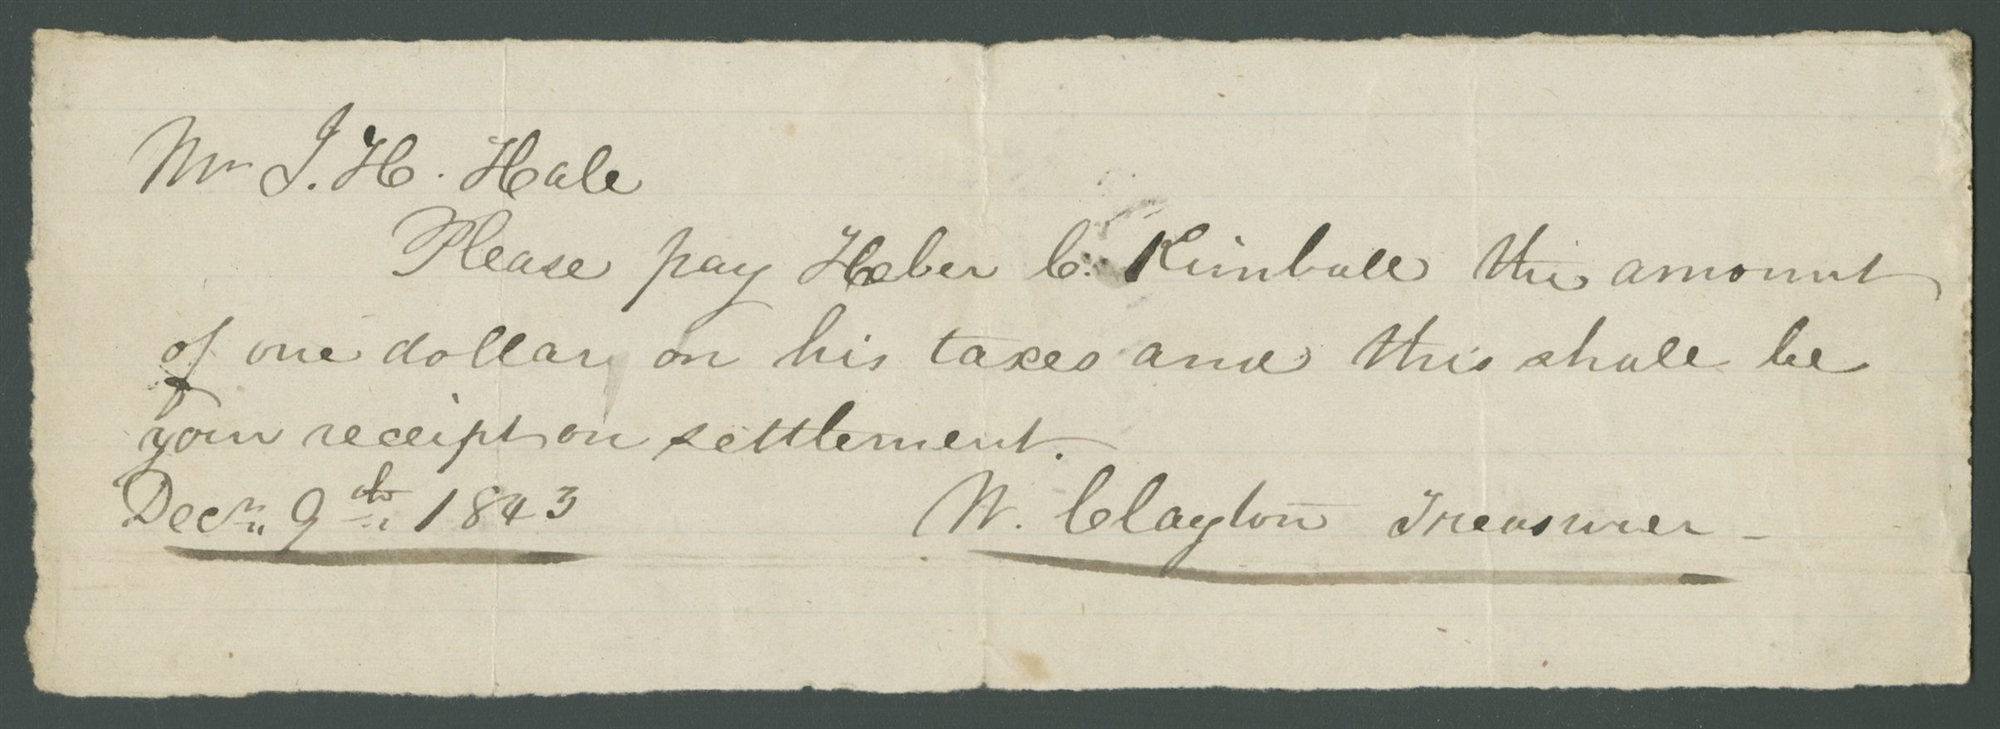 Mr J. H. Hale
Please pay Heber C. Kimball the amount
of one dollar on his taxes and this shall be
your receipt on settlement.
Decr. 9th 1843 W. Clayton Treasurer -